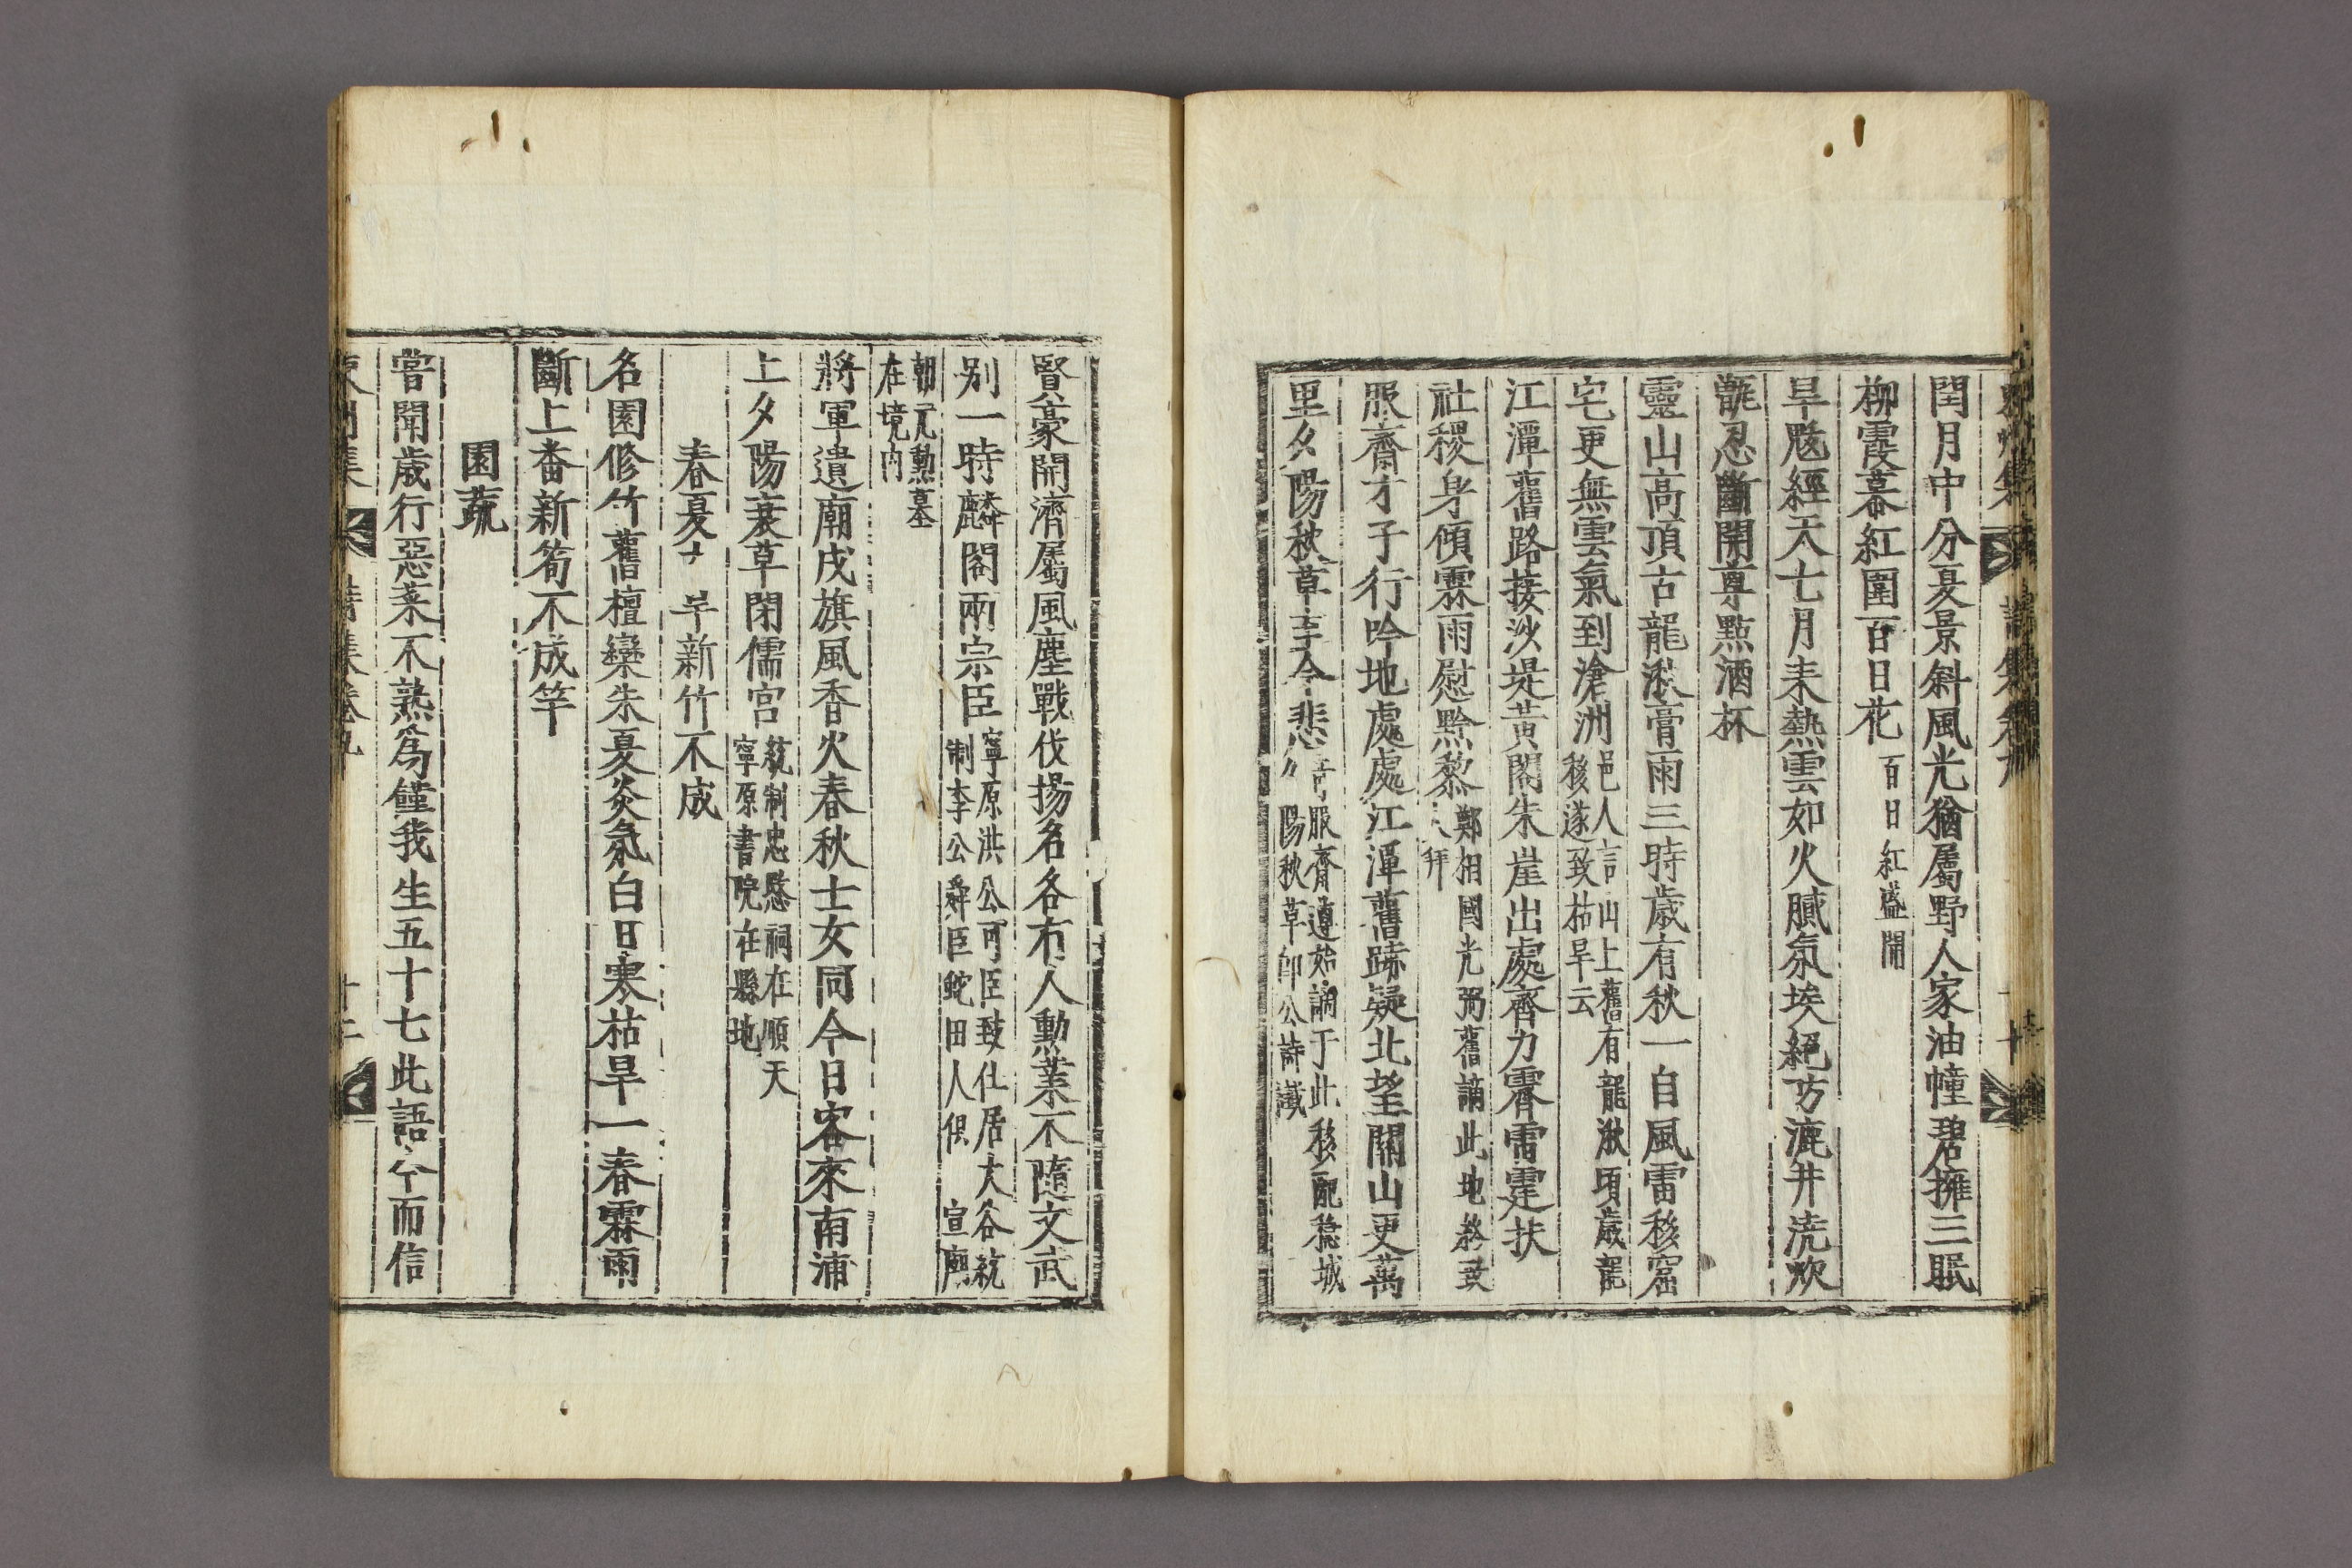 閏月中分夏景斜風光猶屬野人家油幢碧擁三眠
柳霞幕紅圍百日花百日紅盛開
旱魃經天七月來熱雲如火膩氛埃絕方漉井澆炊
甑忍斷開尊點酒杯
靈山高頂古龍湫膏雨三時歲有秋一自風雷移窟
宅更無雲氣到滄洲邑人言山上舊有龍湫頃歲龍移遂致枯旱云
江潭舊路接沙堤黃閣朱崖出處齊力霽雷霆扶
社稷身傾霖雨慰黔黎鄭相國光弼舊謫此地終致 拜
服齋才子行吟地處處江潭舊跡疑北望關山更萬
里夕陽秋草至今悲 服齋遵始謫于此移配穩城 陽秋草卽公詩讖
賢豪開濟屬風塵戰伐揚名各有人勳業不隨文武
別一時麟閣兩宗臣寧原洪公可臣致仕居大谷統制李公舜臣蛇田人俱 宣廟
朝元勳墓在境內
將軍遺廟戍旗風香火春秋士女同今日客來南浦
上夕陽衰草閉儒宮統制忠愍祠在順天寧原書院在縣地
春夏 旱新竹不成
名園修竹舊檀欒朱夏炎氛白日寒枯旱一春霖雨
斷上番新筍不成竿
園蔬
嘗聞歲行惡菜不熟爲饉我生五十七此語今而信
十二